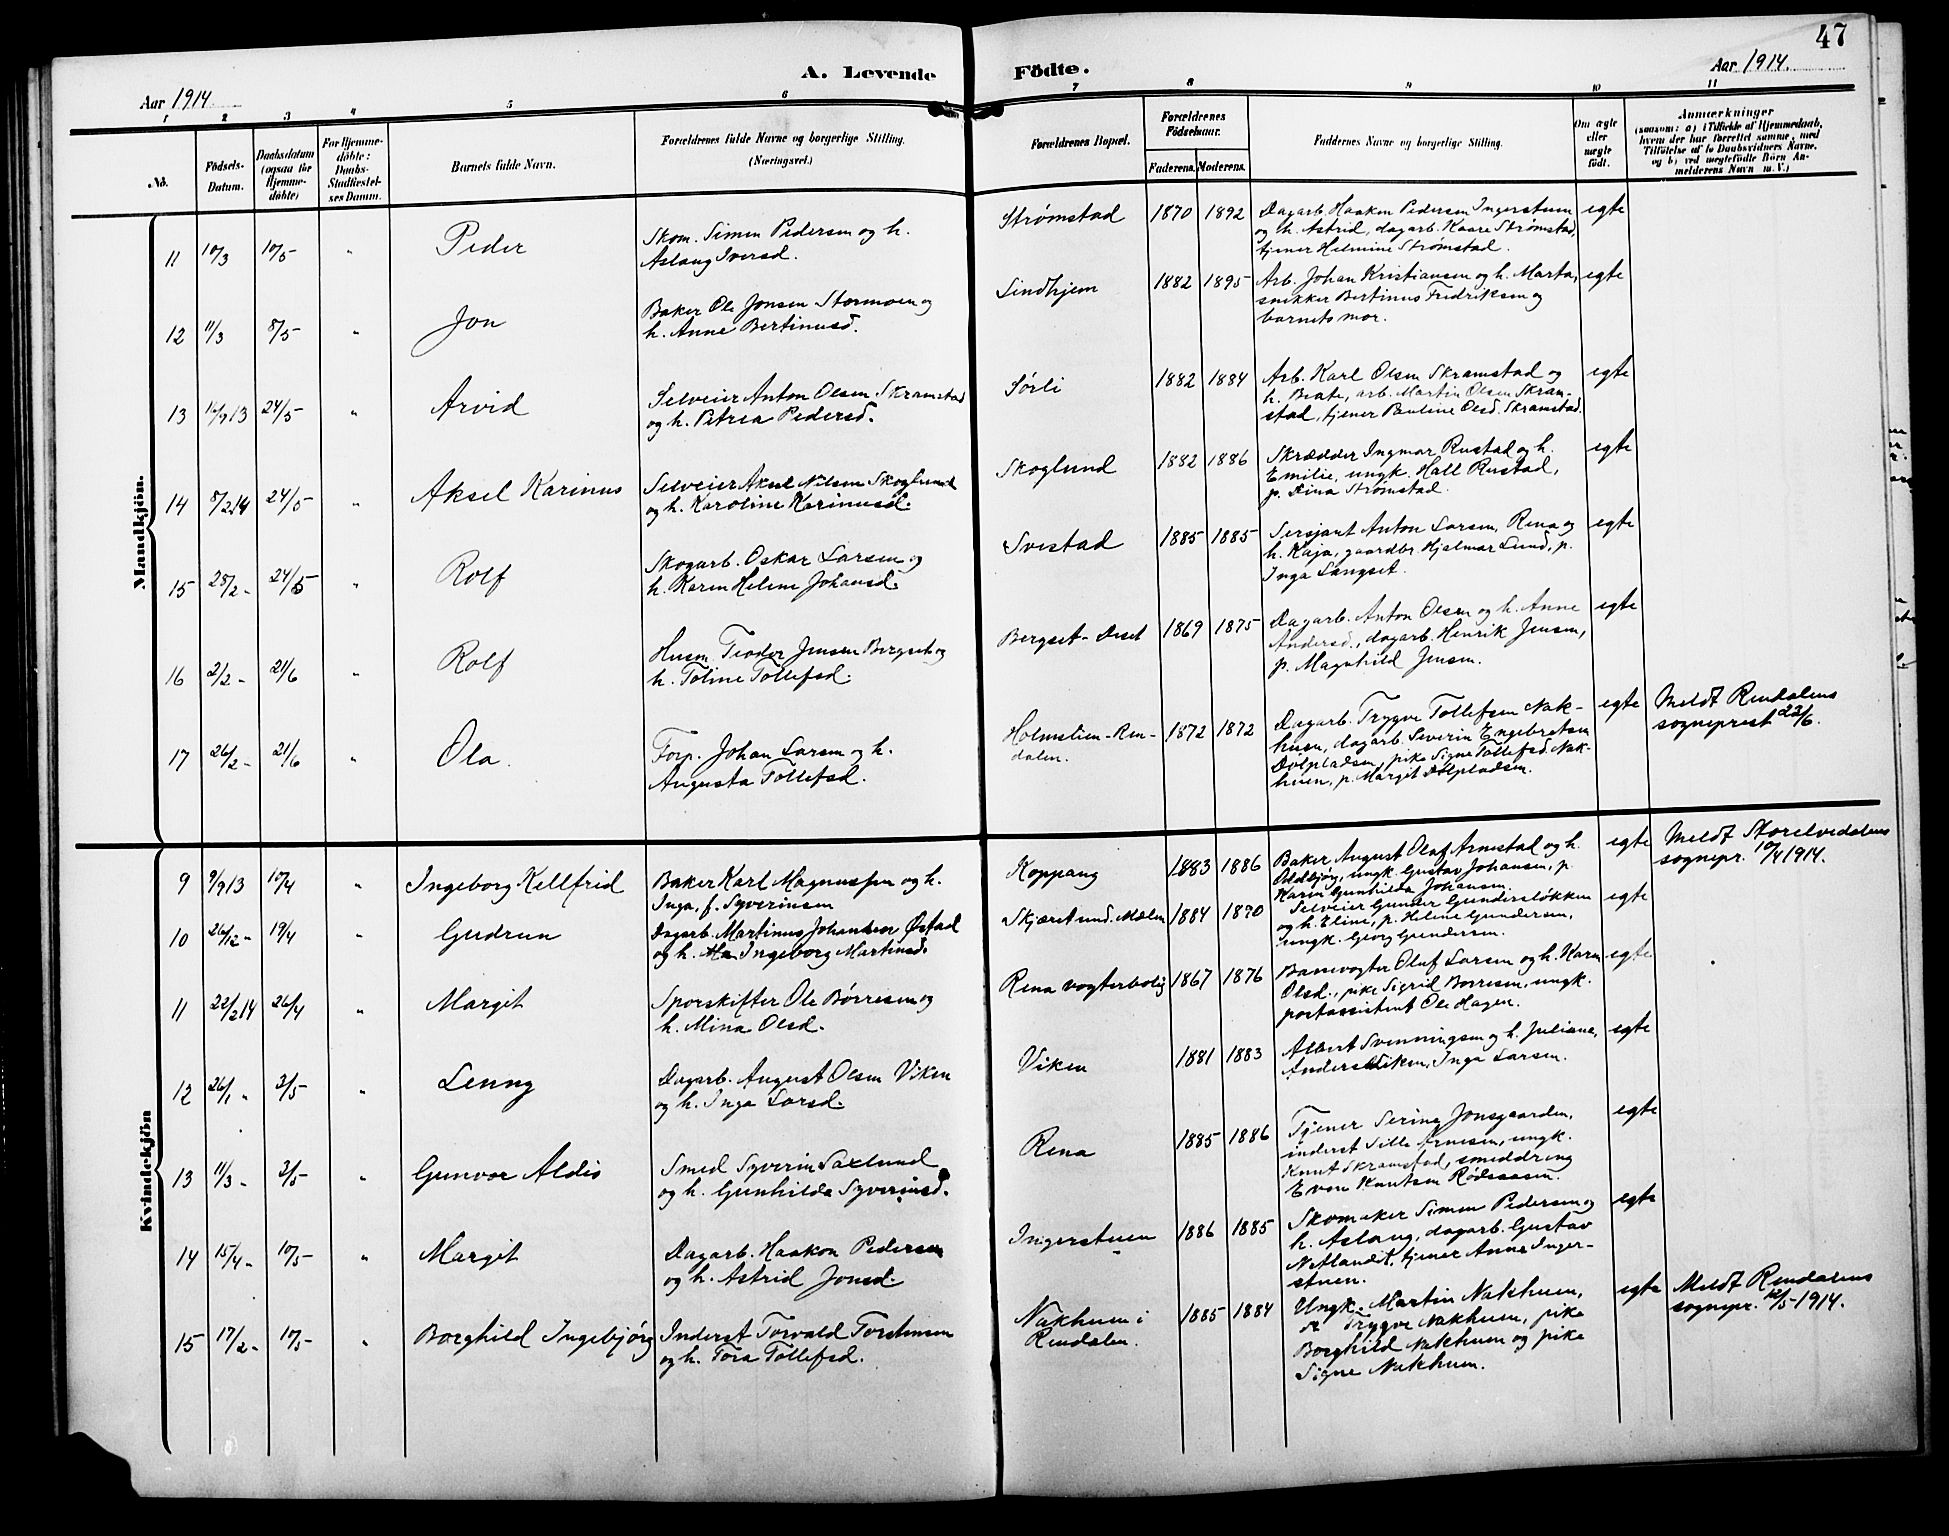 47
A. Levende Födte.
Aar 1914.
Aar 1914.
1 2 3 4 5 6 7 8 9 10 11
No.
Födsels-
Datum.
Daabsdatum
(ogsaa for
Hjemme-
döbte)
For Hjemme-
döbte:
Daabs-
Stadfestel-
ses Datum.
Barnets fulde Navn.
Forældrenes fulde Navne og borgerlige Stilling.
(Næringsvei.)
Forældrenes Bopæl.
Forældrenes
Födselsaar.
Faderens. Moderens.
Faddernes Navne og borgerlig Stilling.
Om ægte
eller
uægte
födt.
Anmærkninger
(saasom: a) i Tilfælde af Hjemmedaab,
hvem der har forrettet samme, med
Tilföielse af to Daabsvidners Navne,
og b) ved uægtefödte Börn An-
melderens Navn m.V.)
Mandkjön.
11 10/3 10/5 " Peder
Skom. Simen Pedersen og h.
Aslaug Iversd.
Strømstad 1870 1892
Dagarb. Haakon Pedersen Ingerstuen
og h. Astrid, dagarb. Kaare Strømstad,
tjener Helmine Strømstad.
egte
12 11/3 8/5 " Jon
Baker Ole Jonsen Stormoen og
h. Anne Bertinusd.
Lindhjem 1882 1895
Arb. Johan Kristiansen og h. Marta,
snikker Bertinus Fredriksen og
barnets mor.
egte
13 24/5 " Arvid
Selveier Anton Olsen Skramstad
og h. Petrea Pedersd.
Sørli 1882 1884
Arb. Karl Olsen Skramstad og
h. Beate, arb. Martin Olsen Skram-
stad, tjener Pauline Olsd. Skramstad.
egte
14 8/2 14 24/5 " Aksel Karinus
Selveier Aksel Nilsen Skoglund
og h. Karoline Karinusd.
Skoglund 1882 1886
Skrædder Ingmar Rustad og h.
Emilie, ungk. Hall Rustad,
p. Dina Strømstad.
egte
15 28/2 - 24/5 " Rolf
Skogarb. Oskar Larsen og
h. Karen Helene Johansd.
Svestad 1885 1885
Sersjant Anton Larsen, Rena og
h. Kaja, gaardbr. Hjalmar Lund, p.
Inga Langset.
egte
16 2/2 - 21/6 " Rolf
Husm. Teodor Jensen Bergset og
h. Toline Tollefsd.
Bergset- Deset 1869 1875
Dagarb. Anton Olsen og h. Anne
Andersd., dagarb. Henrik Jensen,
p. Magnhild Jensen.
egte
17 26/2 - 21/6 " Ola.
Forp. Johan Larsen og h.
Augusta Tollefsd.
Holmslien - Ren-
dalen.
1872 1872
Dagarb. Trygve Tollefsen Nak-
huen, dagarb. Severin Engebretsen
Dolpladsen, pike Signe Tollefsd. Nak-
huen, p. Margit Dolpladsen.
egte
Meldt Rendalens
sogneprest 22/6.
Kvindekjön
9 9/9 13 10/4 Ingeborg Kellfrid
Baker Karl Magnussen og h.
Inga, f. Syverinsen
Koppang 1883 1886
Baker August Olaf Arnestad og h.
ungk. Gustav Johansen, p.
Karen Gunhilda Johansen.
egte
Meldt Storelvedalens
sognepr. 10/4 1914.
10 26/12 - 19/4 " Gudrun
Dagarb. Martinus Johansen Østad
og h. Ingeborg Martinsd.
Skjæret und. Mælen 1884 1890
Selveier Gunder Gundersløkken
og h. Eline, p. Helene Gundersen,
ungk. Georg Gundersen.
egte
11 22/2 14 26/4 " Margit
Sporskifter Ole Børresen og
h. Mina Olsd.
Rena vogterbolig 1867 1876
Banevogter Oluf Larsen og h. Karen
Olsd., pike Sigrid Børresen, ungk.
postassistent Ole Hagen.
egte
12 26/1 " 3/5 " Lenny
Dagarb. August Olsen Viken
og h. Inga Larsd.
Viken 1881 1883
Albert Svenningsen og h. Juliane,
Anders Viken, Inga Larsen.
egte
13 11/3 - 3/5 " Gunvor Aldis
Smed Syverin Saxlund
og h. Gunhilda Syverinsd.
Rena 1885 1886
Tjener Serine Jonsgaarden,
inderst Sille Arnesen, ungk.
Knut Skramstad, smeddreng
Even Knutsen Rødsaasen.
egte
14 15/4 - 10/5 - " Margit
Dagarb. Haakon Pedersen
og h. Astrid Jonsd.
Ingerstuen 1886 1885
Skomaker Simen Pedersen og
h. Aslaug, dagarb. Gustav
Netlandt, tjener Anne Inger-
stuen.
egte
15 17/2 - 10/5 - " Borghild Ingebjørg
Inderst Torvald Torstensen
og h. Tora Tollefsd.
Nakhuen i
Rendalen.
1885 1884
Ungk. Martin Nakhuen,
Trygve Nakhuen, pike
Borghild Nakhuen og pike
Signe Nakhuen.
egte
Meldt Rendalens
sognepr. 12/5 - 1914.